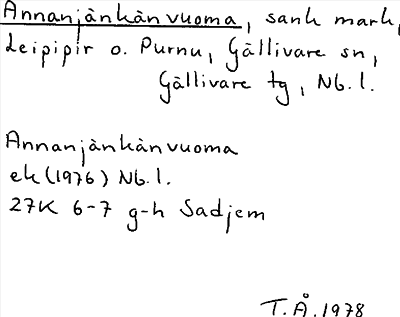 Annanjänkänvuoma, sank mark,
Leipipir o. Purnu, Gällivare sn,
Gällivare tg, Nb.l.
Annanjänkänvuoma
ek (1976) Nb.l.
27K 6-7 g-h Sadjem
T.Å. 1978